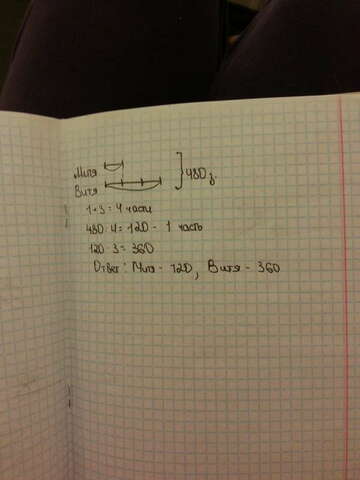 Митя
Витя
480 г.
1+3=4 части
480:4=120 - 1 часть
120·3=360
Ответ: Митя - 120, Витя - 360